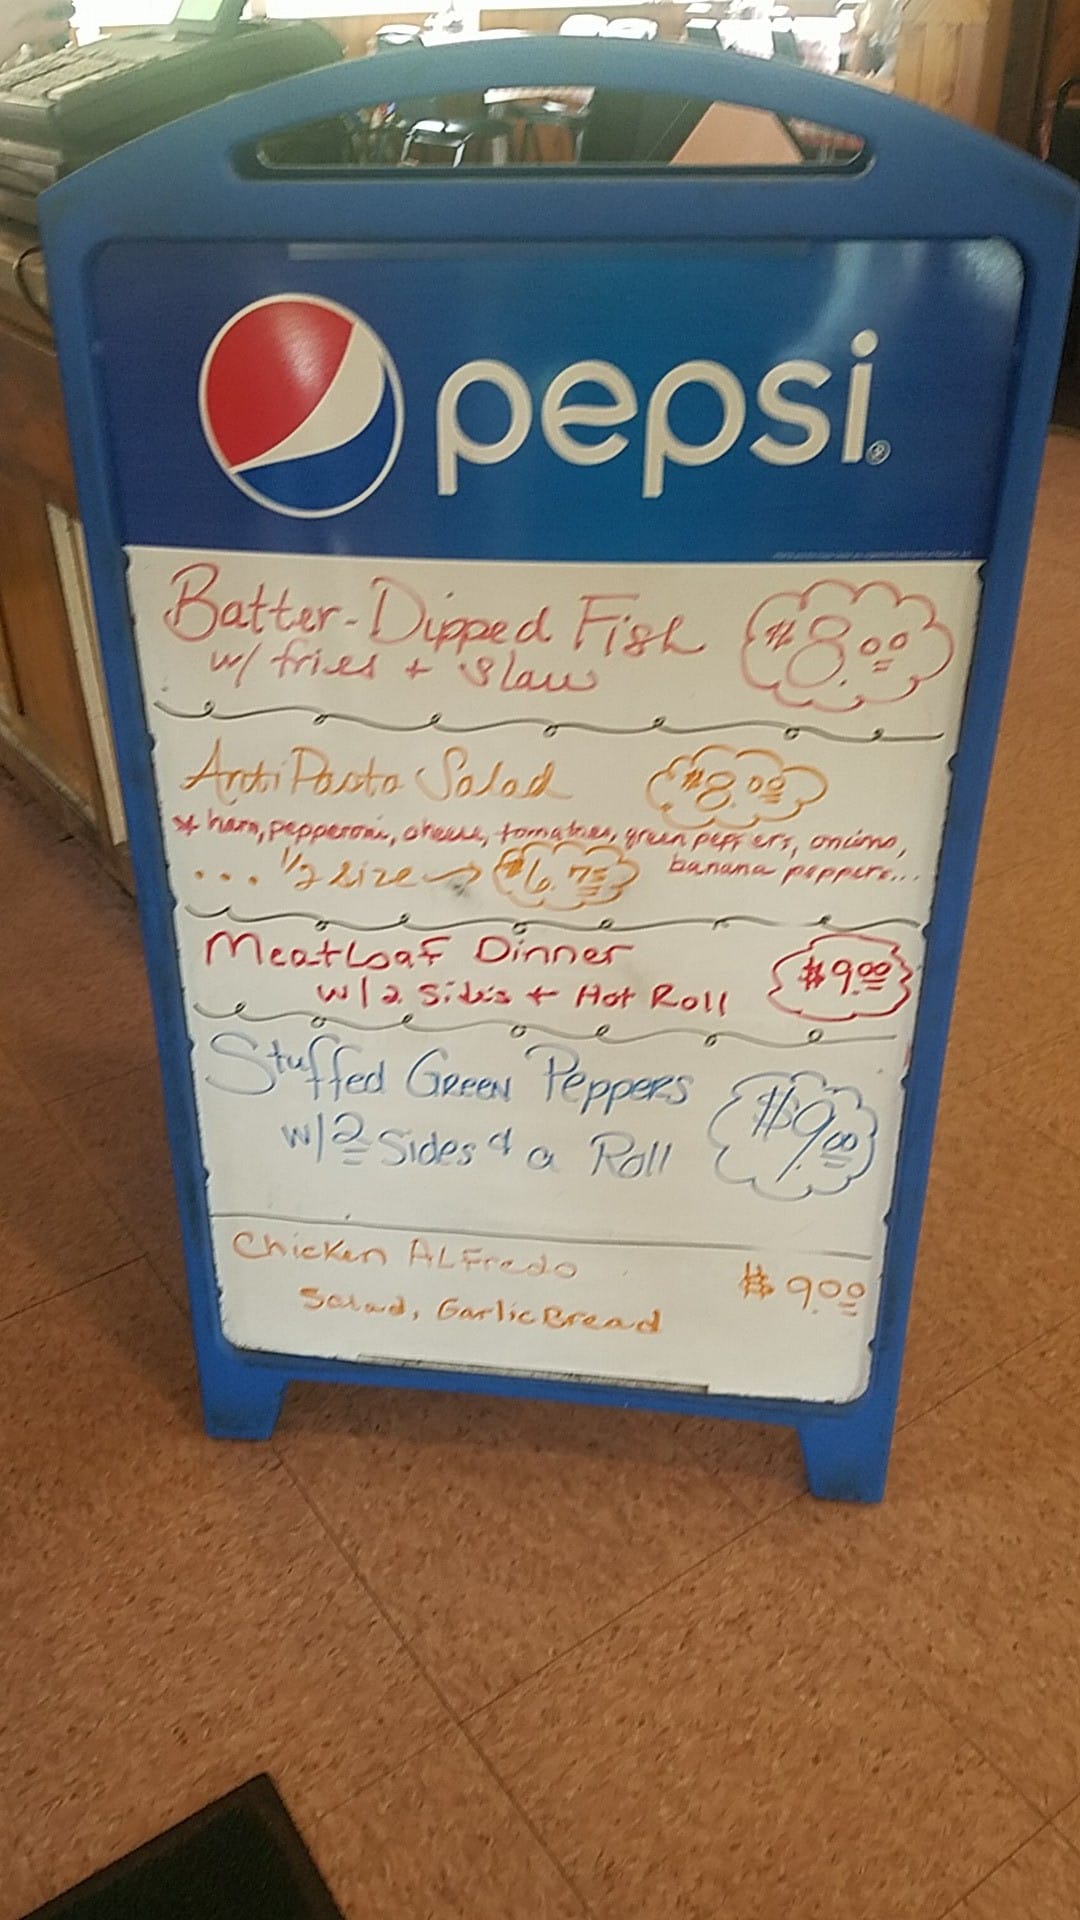 pepsi®
Batter-Dipped Fish $8.00
w/ fries + slaw
AntiPasto Salad $8.00
* ham, pepperoni, cheese, tomatoes, green peppers, onions,
banana peppers...
... 1/2 size → $6.75
Meatloaf Dinner $9.00
w/2 Sides + Hot Roll
Stuffed Green Peppers $9.00
w/2 Sides & a Roll
Chicken ALFredo $9.00
Salad, Garlic Bread